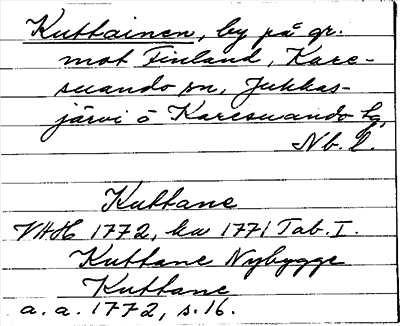 Kuttainen, by på gr.
mot Finland, Kare-
suando sn, Jukkas-
järvi o Karesuando tg,
Nb. l.
Kuttane
VHH 1772, ka 1771 Tab. I.
Kuttane Nybygge
Kuttane
a. a. 1772, s. 16.